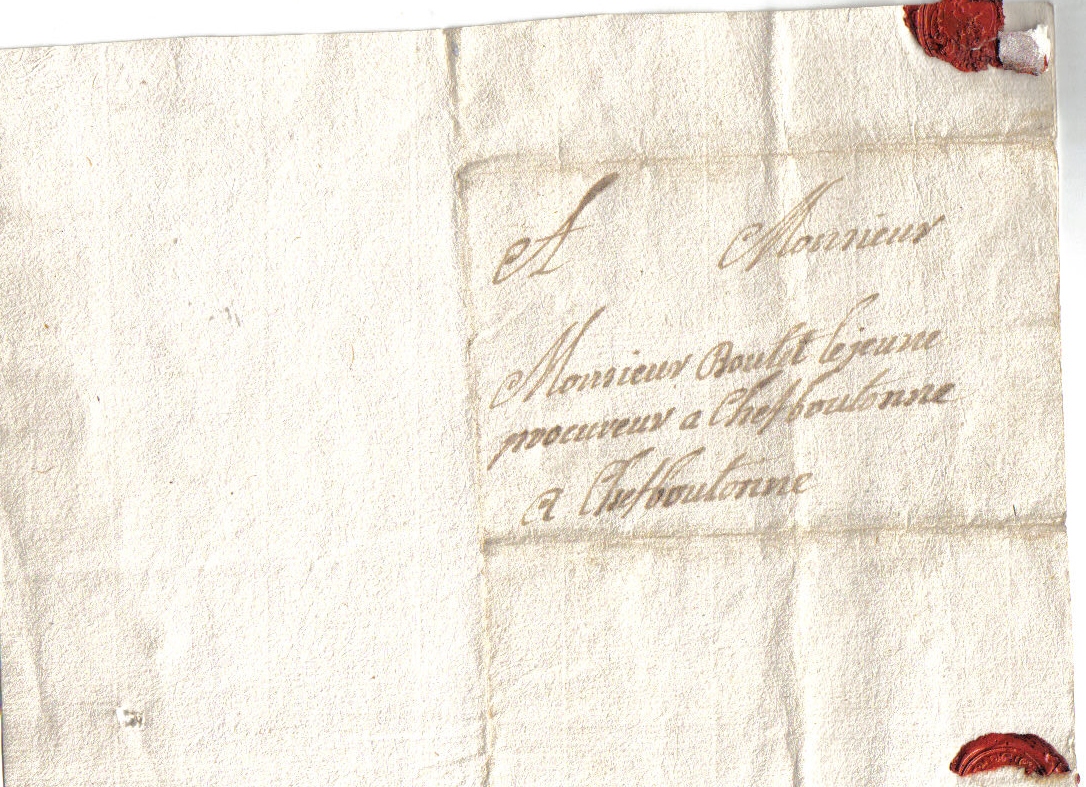 A Monsieur
Monsieur Boulet lejeune
procureur a Chefboutonne
a Chefboutonne